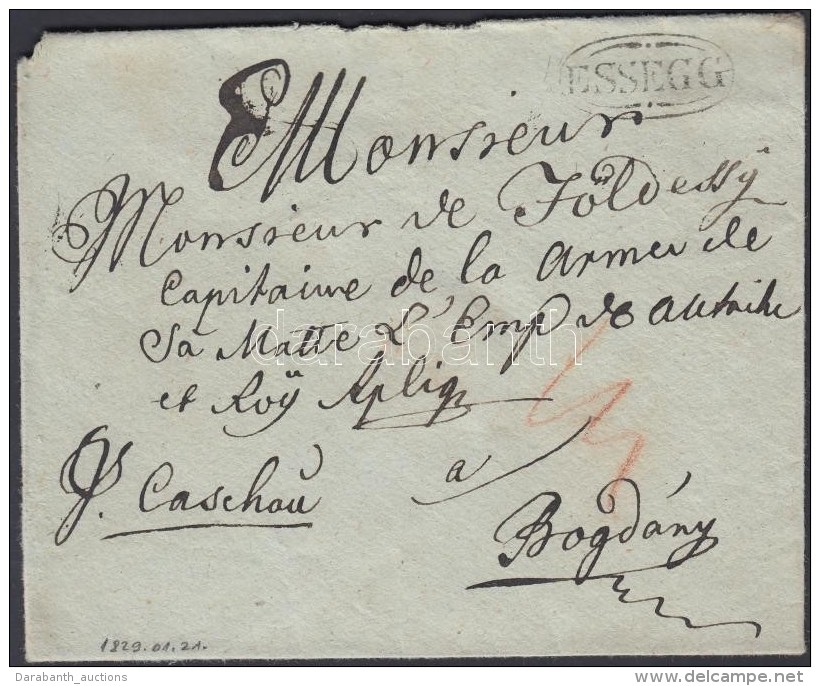 ESSEGG
A Monsieur
Monsieur de Földessÿ
Capitaine de la Armee de
Sa Matte L'Emp de
et Roÿ Apliq
p. Caschau
a
Bogdány
1829.01.21.
darabanth
Darabanth_auctions
www.delcampe.net